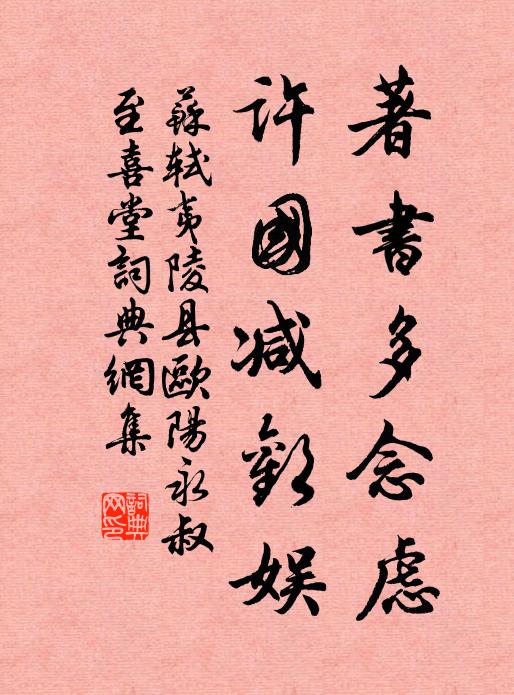 著書多念慮
許國減歡娛
蘇軾夷陵县歐陽永叔
至喜堂詞典網集
詞典网印